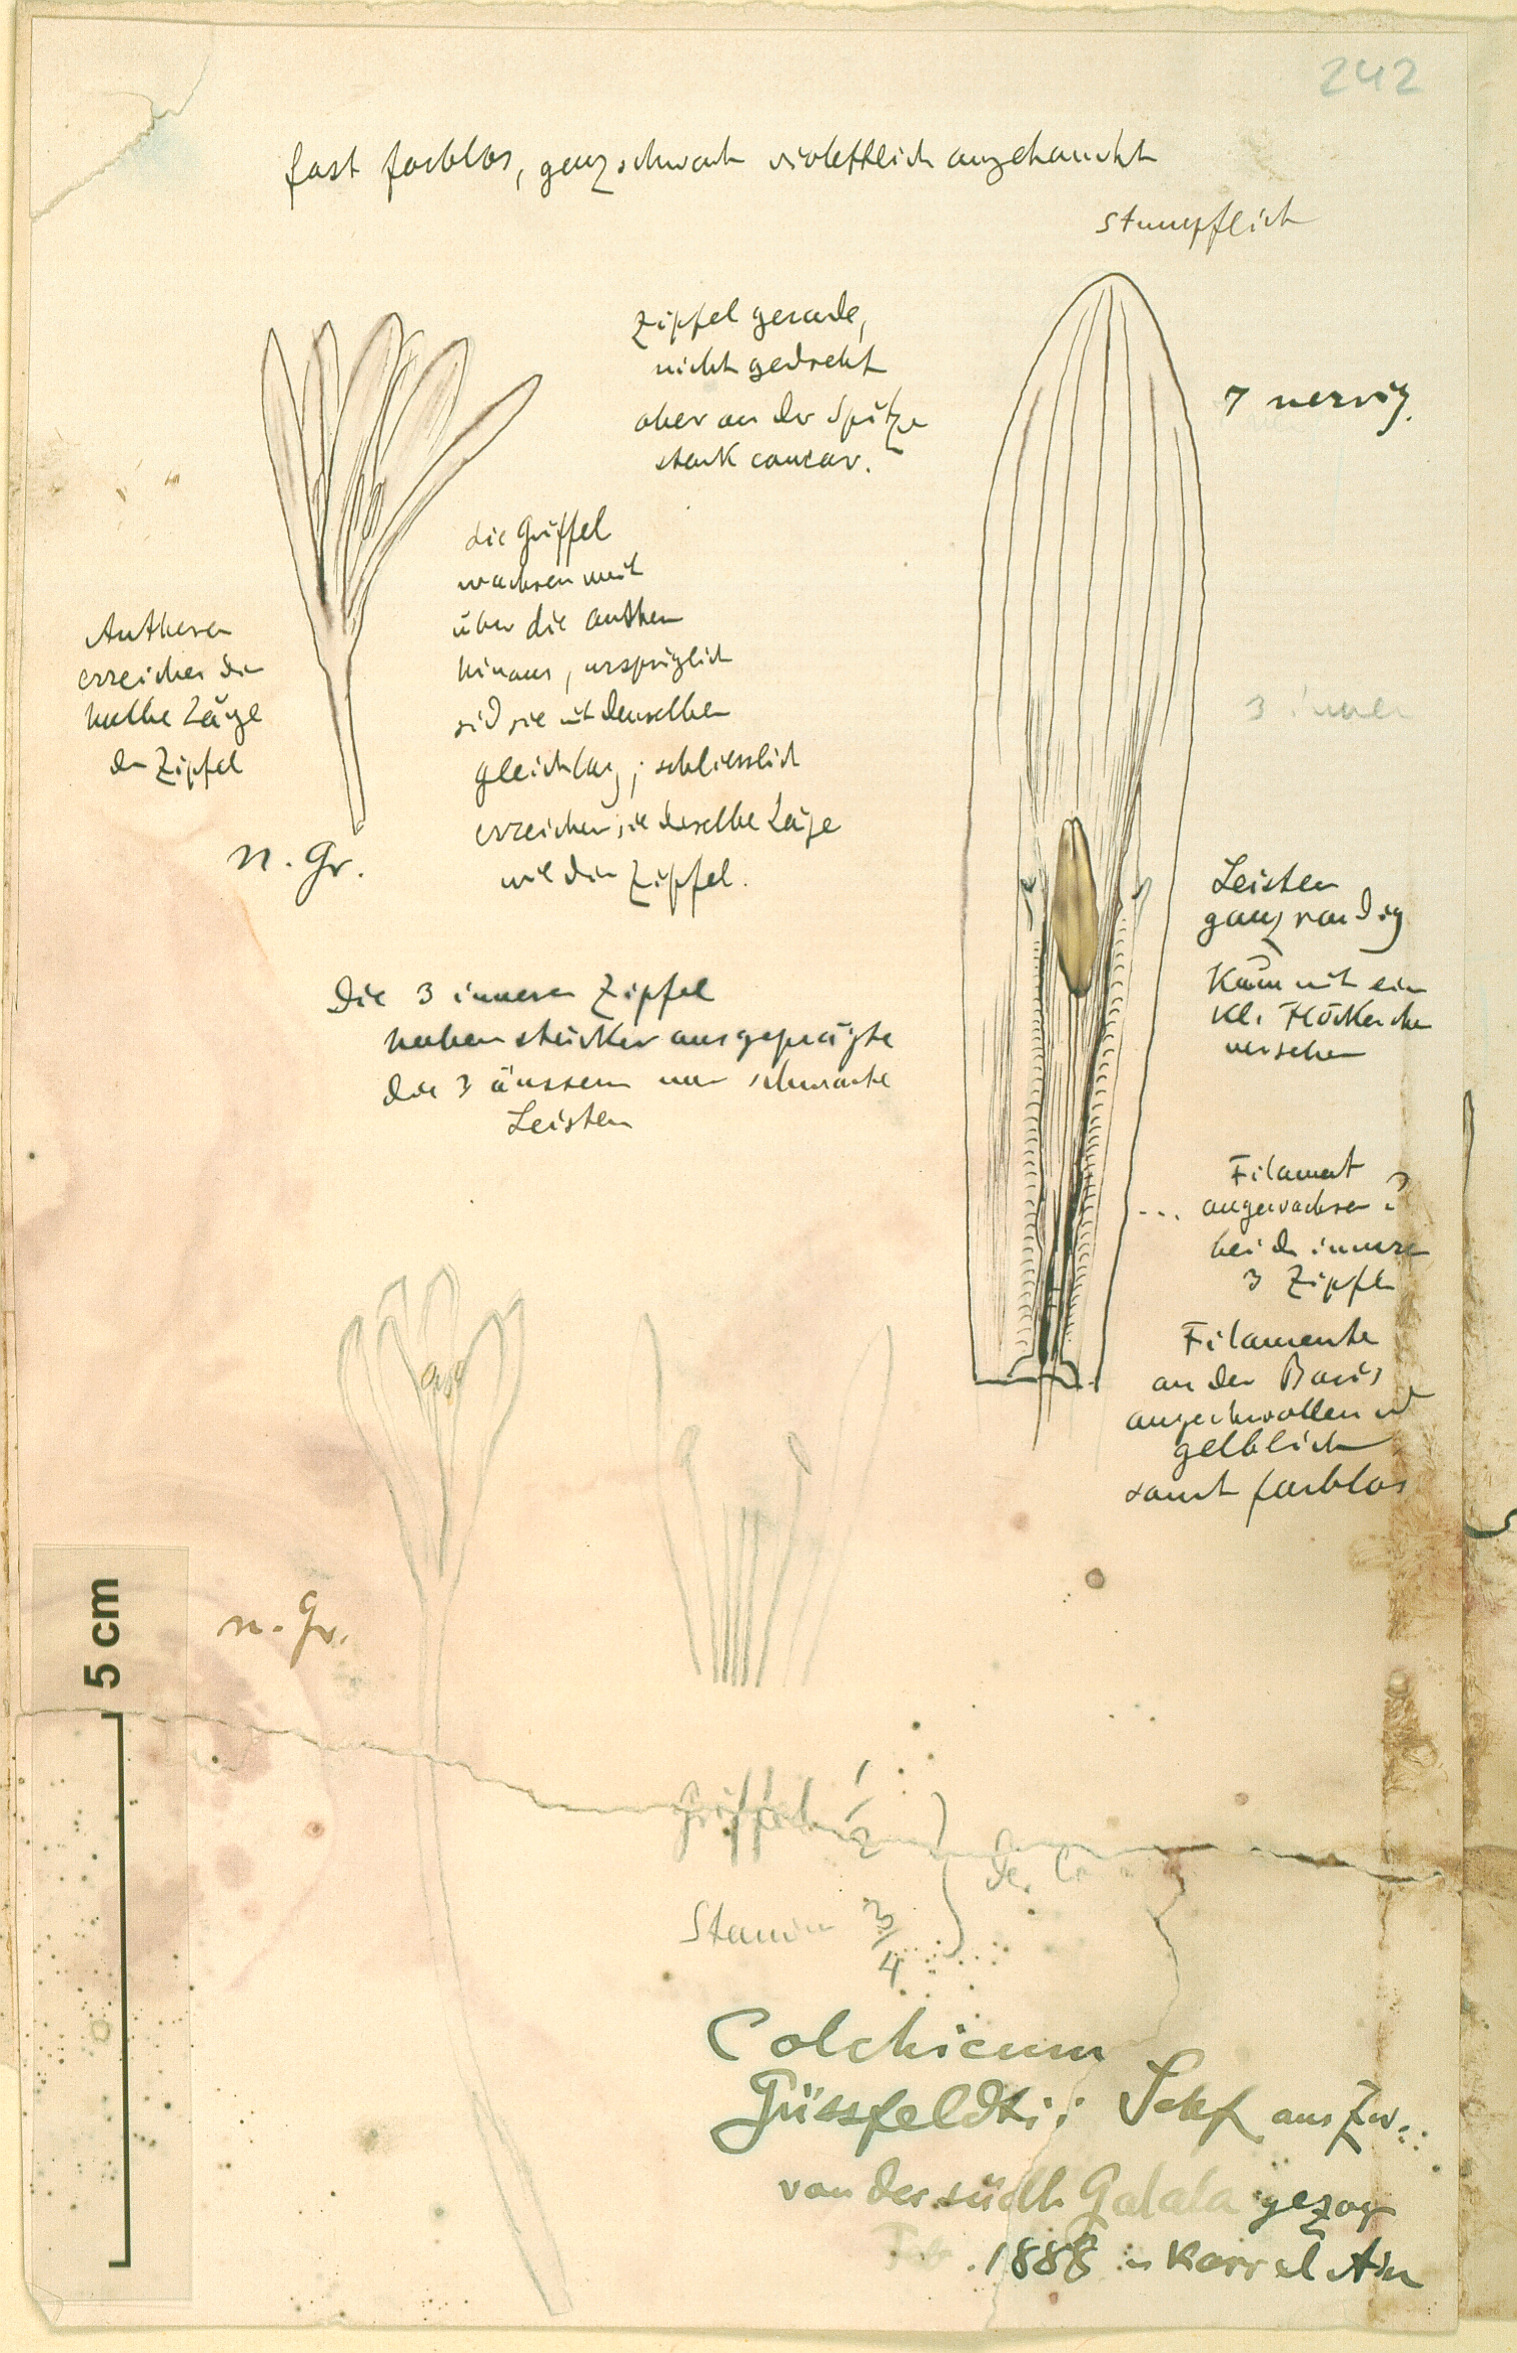 242
fast farblos, ganz schwach violettlich angehaucht
stumpflich
Zipfel gerade,
nicht gedreht
aber an der Spitze
stark concav.
7 nervig.
die Griffel
wachsen weit
über die Anthen
hinaus, ursprüglich
sid sie mit denselben
gleichlag; schliesslich
erreichen sie dieselbe Läge
wie die Zipfel.
Antheren
erreichen die
halbe Läge
der Zipfel
n. Gr.
3 inner
Leisten
ganzrandig
Kaum mit ein
kl. Höckerchen
versehen
Die 3 inneren Zipfel
haben stärker ausgeprägte
die 3 äussern nur schwache
Leisten
Filament
... angewachsen ?
bei den inneren
3 Zipfeln
Filamente
an der Basis
angeschwollen ud
gelblich
sonst farblos
n. Gr.
5 cm
Griffel 1/2
der
Stamin 3/4
Colchicum
Güssfeldtii Schf aus Zw.
von der südl. Galala gezog
1888 in Karr el Ain